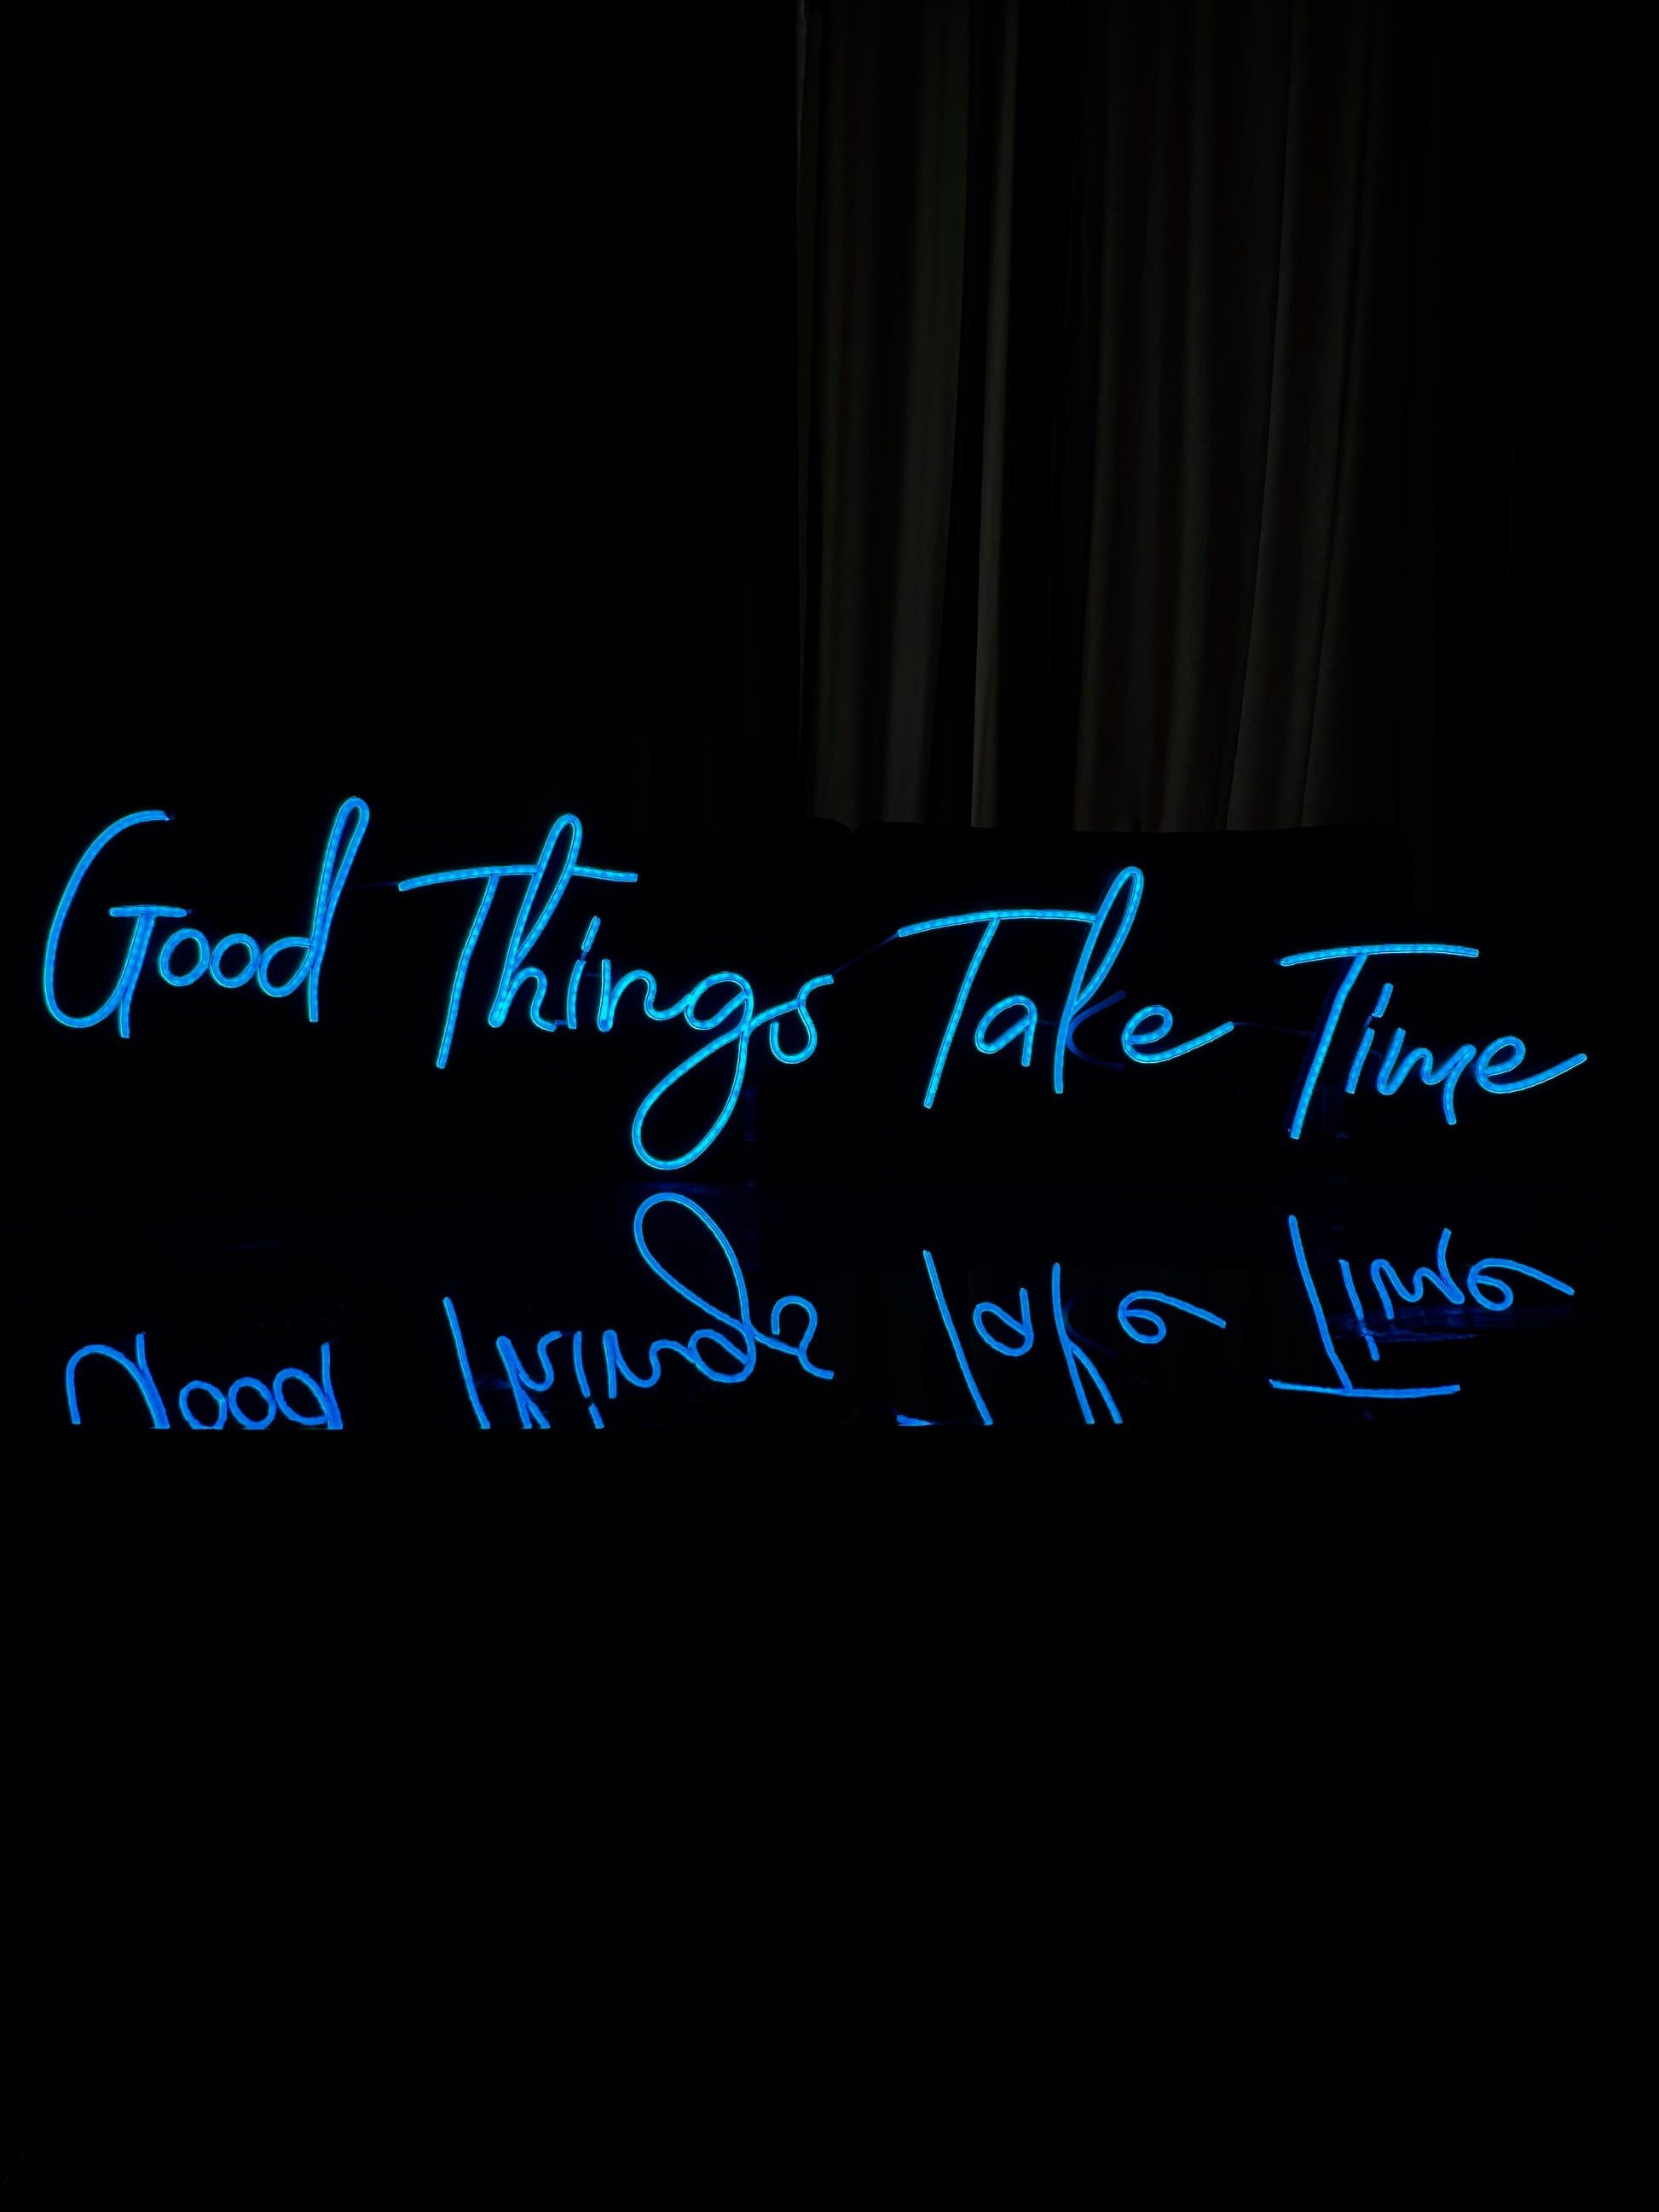 Good Things Take Time